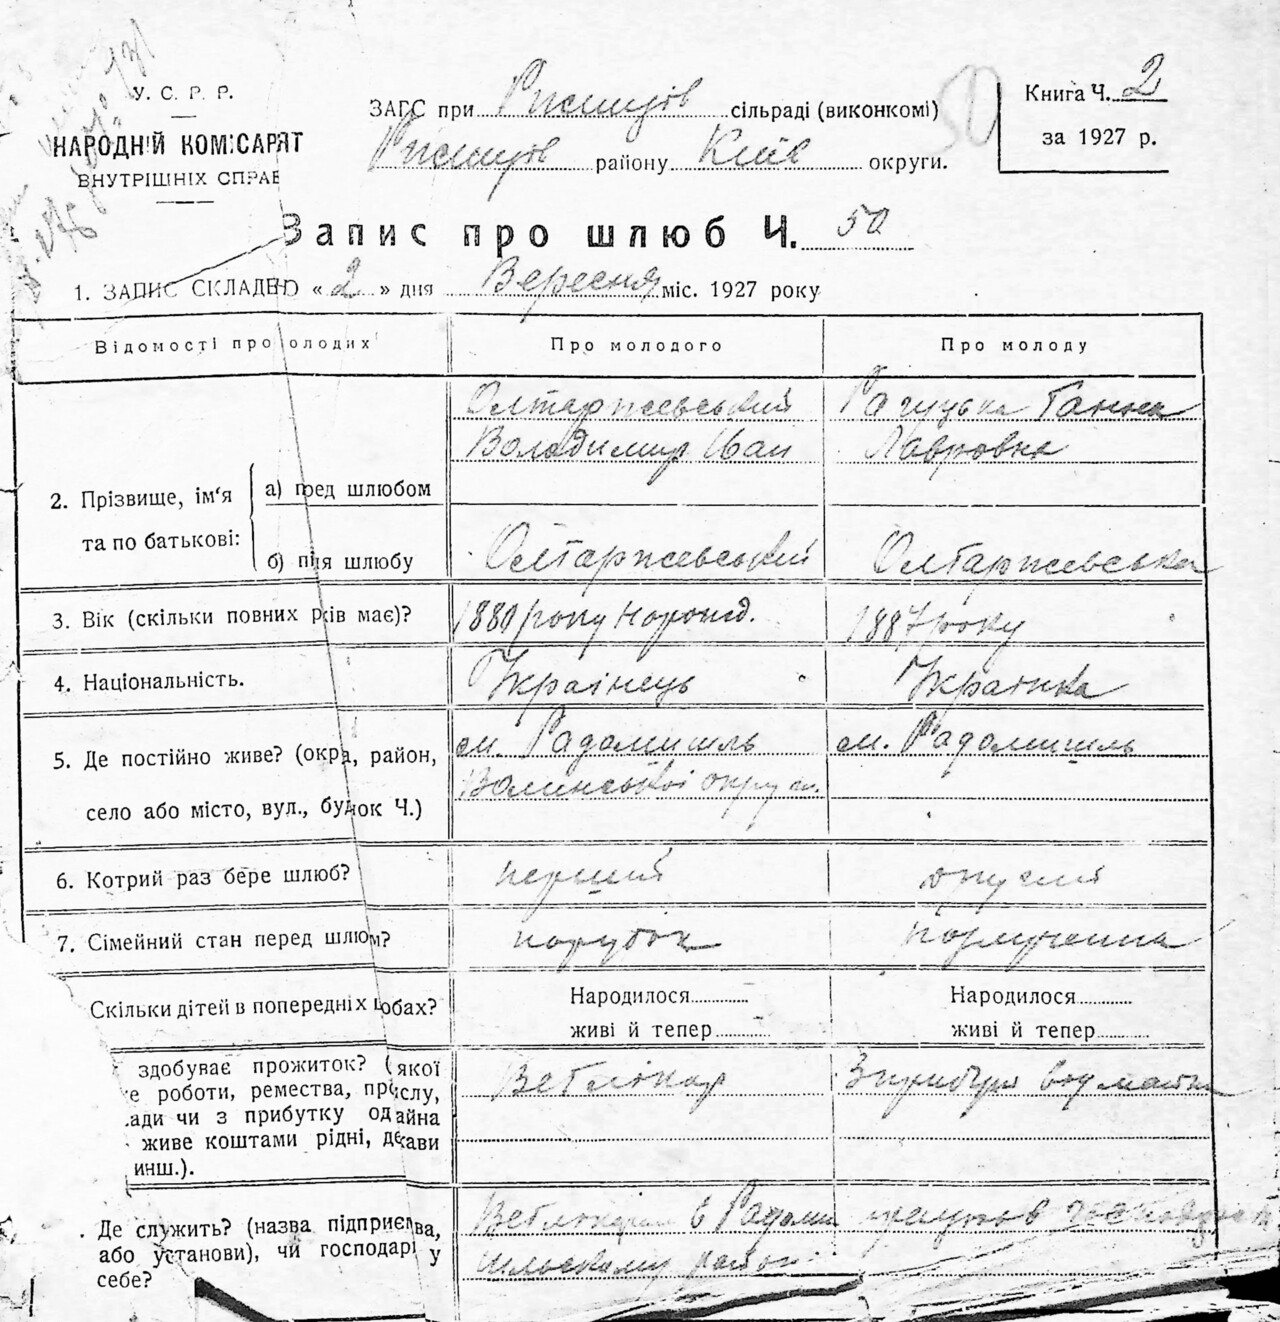 У. С. Р. Р.
НАРОДНІЙ КОМІСАРЯТ
ВНУТРІШНІХ СПРАВ
ЗАГС при Ржищів сільраді (виконкомі)
Ржищів району Київ округи.
50
Книга Ч. 2
за 1927 р.
Запис про шлюб Ч. 50
1. ЗАПИС СКЛАДЕНО « 2 » дня Вересня міс. 1927 року
Відомості про молодих
Про молодого
Про молоду
2. Прізвище, ім'я та по батькові:
а) перед шлюбом
Олтаржевський
Володимир Іван
Ганна
Лавровна
б) після шлюбу
Олтаржевський
Олтаржевська
3. Вік (скільки повних рків має)?
року народ.
1887 року
4. Національність.
Українець
Українка
5. Де постійно живе? (окра, район,
село або місто, вул., будок Ч.)
м. Радомишль
Волинської округи.
м. Радомишль
6. Котрий раз бере шлюб?
перший
другий
7. Сімейний стан перед шлюм?
парубок
Скільки дітей в попередніх шобах?
Народилося
живі й тепер
Народилося
живі й тепер
здобуває прожиток? (якої
е роботи, ремества, прислу,
ади чи з прибутку одайна
живе коштами рідні, держави
инш.).
Ветлікар
Де служить? (назва підприєтва,
або установи), чи господарі у
себе?
Ветлікарем в Радоми
шльському районі